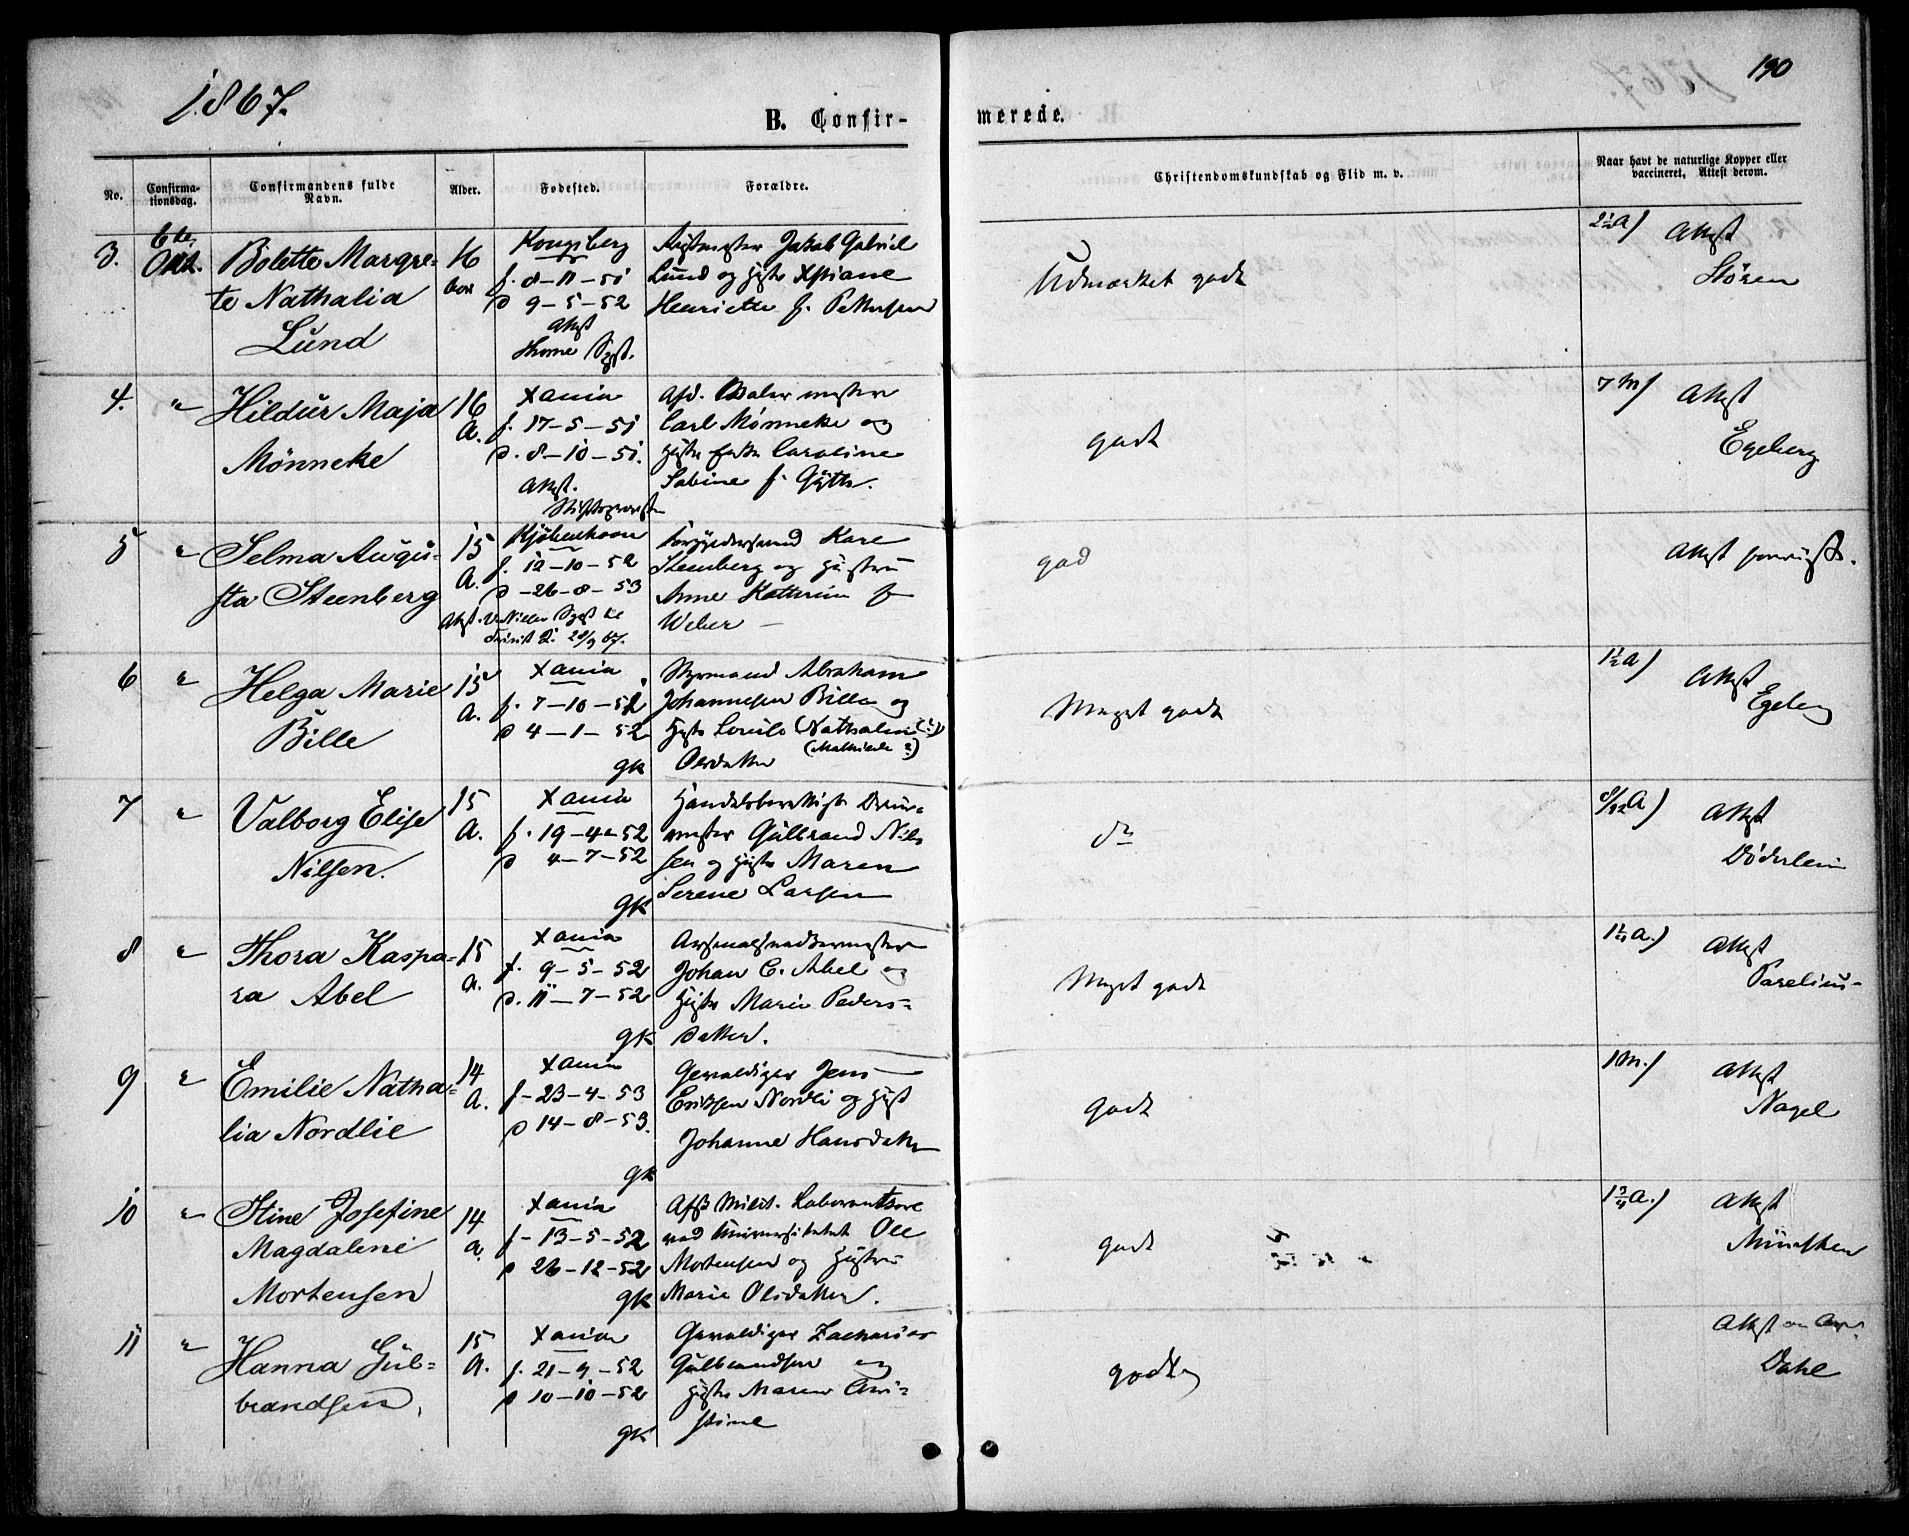 1867.
190
B. Confir-
merede.
No.
Confirma-
tionsdag.
Confirmandens fulde
Navn.
Alder.
Fødested.
Forældre.
Christendomskundskab og Flid m. v.
Naar havt de naturlige Kopper eller
vaccineret, Attest derom.
3.
6te
Okt.
Bolette Margre-
te Nathalia
Lund
16
Kongsberg
f. 8-11-51
d 9-5-52
Attest
Jakob Gabriel
Lund og Xstiane
Henriette f. Pettersen
Udmærket godt
2½ a)
Attest
Stören
4.
"
Hildur Maja
Mønneke
16
A.
Xania
f. 17-5-51
d. 8-10-51.
Attest.
Stiftsprovsten
Afd. Malermester
Carl Mønneke og
Caroline
Sabine f.
godt
7 M)
Attest
Egeberg
5
"
Selma Augus-
ta Steenberg
15
A.
Kjöbenhavn
f. 12-10-52
d -26-8-53
Attest.
Kare
Steenberg og Hustru
Anne Kathrine f
Weber
god
Attest
6
"
Helga Marie
Bille
15
A.
Xania
f. 7-10-51
d 4-1-52
gk
Styrmand Abraham
Johannesen Bille og
Lovise (Nathalie (?)
(Mathilde ?)
Olsdatter
Meget godt
1½ a)
Attest
Egeberg
7
"
Valborg Elise
Nilsen.
15
A.
Xania
f. 19-4-52
d 4-7-52
gk
Gulbrand Nil-
sen og Hustr Maren
Serene Larsen
do
A)
Attest
Döderlein
8
"
Thora Kaspa-
ra Abel
15
A.
Xania
f. 9-5-52
d. 11-7-52
gk
Johan C. Abel og
Hustr Marie Peders-
datter.
Meget godt
a.)
Attest
Parelius
9
"
Emilie Natha-
lia Nordlie
14
A.
Xania
f-23-4-53
d 14-8-53.
gk
Gevaldiger Jens
Eriksen Nordli og Hust
Johanne Hansdatter
Godt
1 M.)
Attest
Nagel
10
"
Stine Josefine
Magdalene
Mortensen
14
a.
Xania
f-13-5-52
d 26-12-52
gk
Milit. Laborantsove
ved Universitetet Ole
Mortensen og Hustru
Marie Olsdatter.
godt
1¾ a.)
Attest
Münster
11
"
Hanna Gul-
brandsen,
15
A.
Xania
f. 21-9-52
d 10-10-52
gk
Gevaldiger Zacharias
Gulbrandsen og
Hustr Maren Chri-
stine
godt
Attest
Dahl